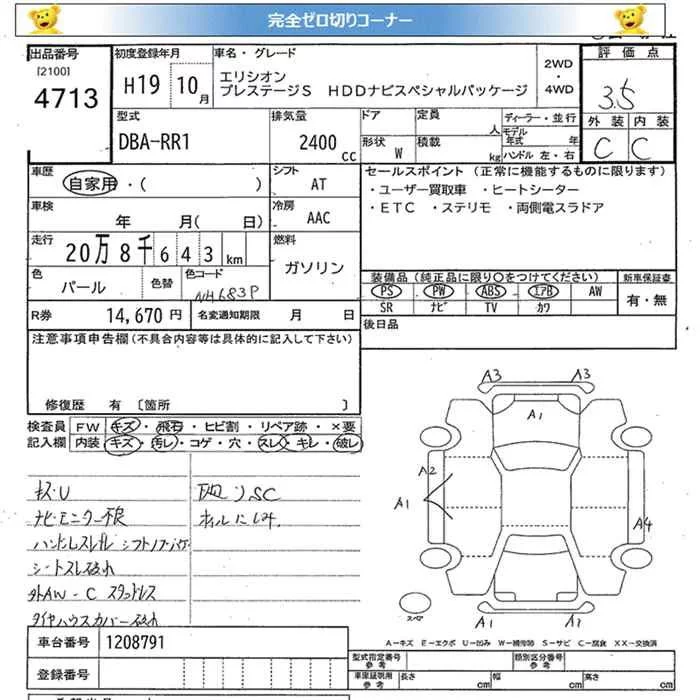 完全ゼロ切りコーナー
出品番号 初度登録年月 車名・グレード 2WD・4WD 評価点
[2100]
4713 H19 10月 エリシオン
プレステージS HDDナビスペシャルパッケージ 3.5
型式 排気量 ドア 定員 人 ディーラー・並行 外装 内装
DBA-RR1 2400cc 形状 W 積載 kg モデル年式 年 C C
ハンドル 左・右
車歴 自家用・( ) シフト AT セールスポイント(正常に機能するものに限ります)
・ユーザー買取車 ・ヒートシーター
車検 年 月( 日) 冷房 AAC ・ETC ・ステリモ ・両側電スラドア
走行 20万8千643km 燃料 ガソリン
色 パール 色替 色コード NH683P 装備品(純正品に限り〇をつけてください) 新車保証書
PS PW ABS エアB AW 有・無
SR ナビ TV カワ
R券 14,670円 名変通知期限 月 日 後日品
注意事項申告欄(不具合内容等は具体的に記入して下さい)
修復歴 有 [箇所 ]
検査員 FW キズ・飛石・ヒビ割・リペア跡・×要
記入欄 内装 キズ・汚レ・コゲ・穴・スレ・キレ・破レ
キズ・U
ナビモニター不良
シートスレ破れ
外AW-C スタッドレス
タイヤハウスカバー破れ
オイルにじみ
A3 A3
A1
A2
A1
A4
スペア
A1
A-キズ E-エクボ U-凹み W-補修跡 S-サビ C-腐食 XX-交換済
車台番号 1208791
登録番号
型式指定番号 参考 類別区分番号 参考
車庫証明用 参考 長さ cm 幅 cm 高さ cm